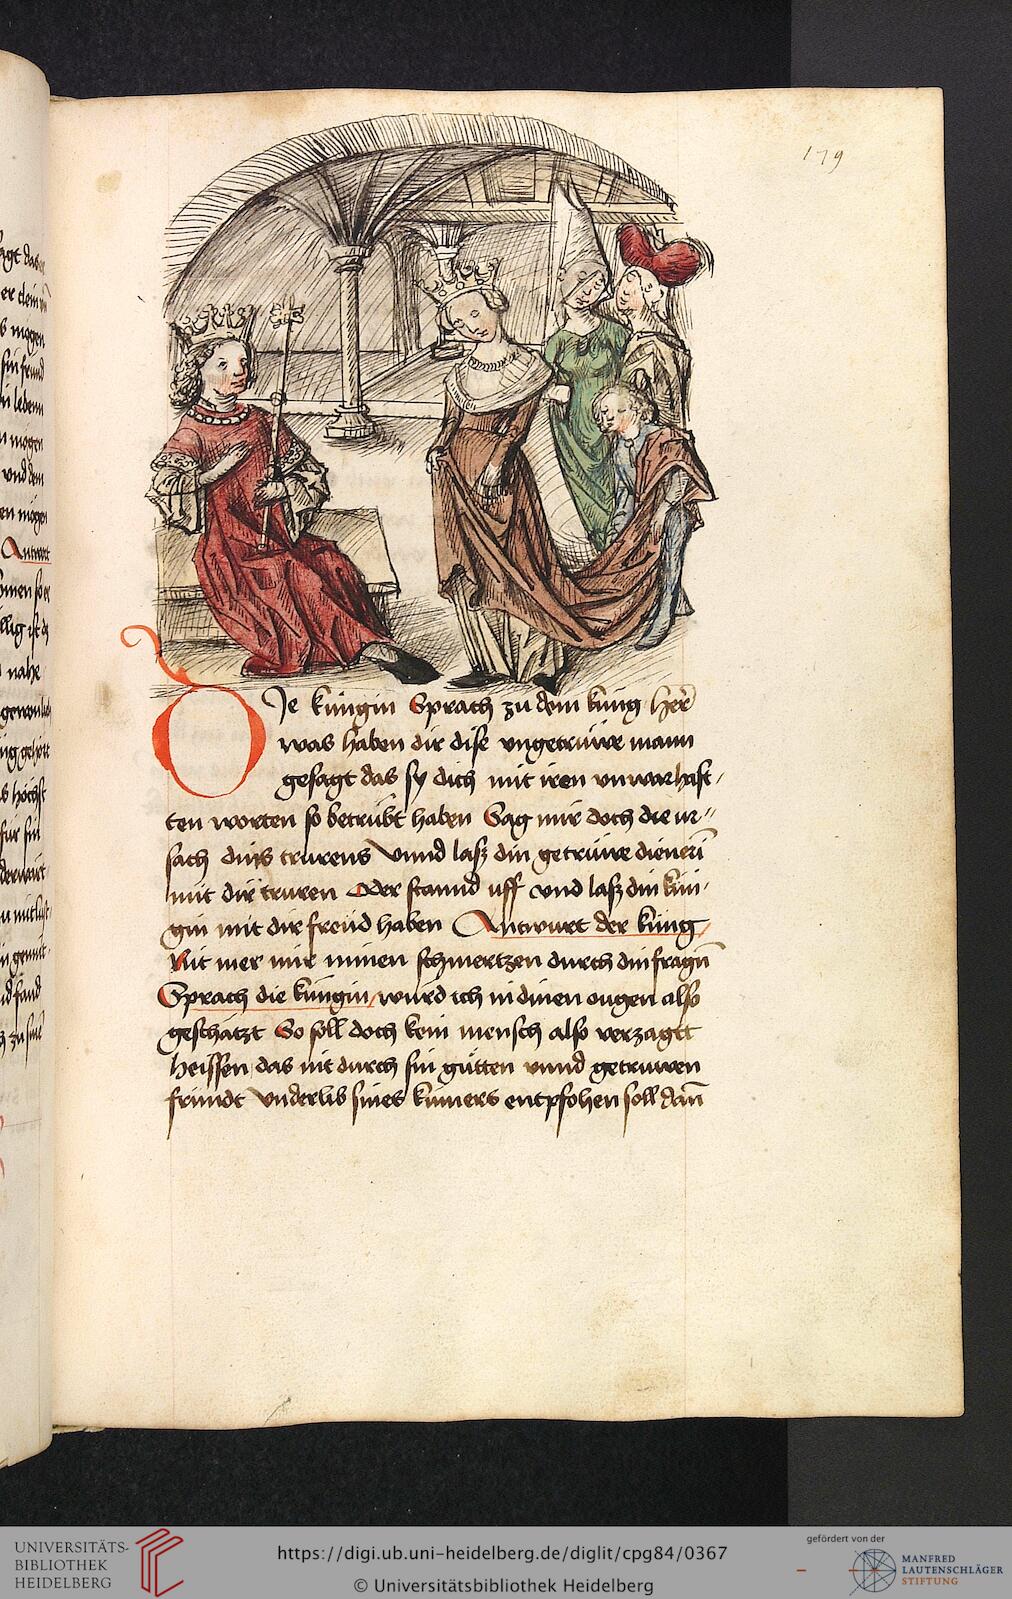 179
DIe kúngin Sprach zu dem kúng Her̃
was haben dir dise vngetrúwe mann
gesagt das sy dich mit iren vnwarhaff-
ten worten so betrúbt haben Sag mir doch die vr-
sach dins trurens Vnnd lasz din getrúwe dienerĩ
mit dir truren Oder stannd uff vnd lasz din kún-
gin mit dir freúd haben Antwurt der kúng
Nit mer mir minen schmertzen durch din fragñ
Sprach die kúngin wúrd ich in dinen ougen also
geschätzt So soll doch kein mensch also verzagtt
heissen das nit durch sin gútten vnnd getruwen
fründt Vnderlib sines kumers entpfohen soll dañ
Antwurt
UNIVERSITÄTS-
BIBLIOTHEK
HEIDELBERG
https://digi.ub.uni-heidelberg.de/diglit/cpg84/0367
© Universitätsbibliothek Heidelberg
gefördert von der
MANFRED
LAUTENSCHLÄGER
STIFTUNG